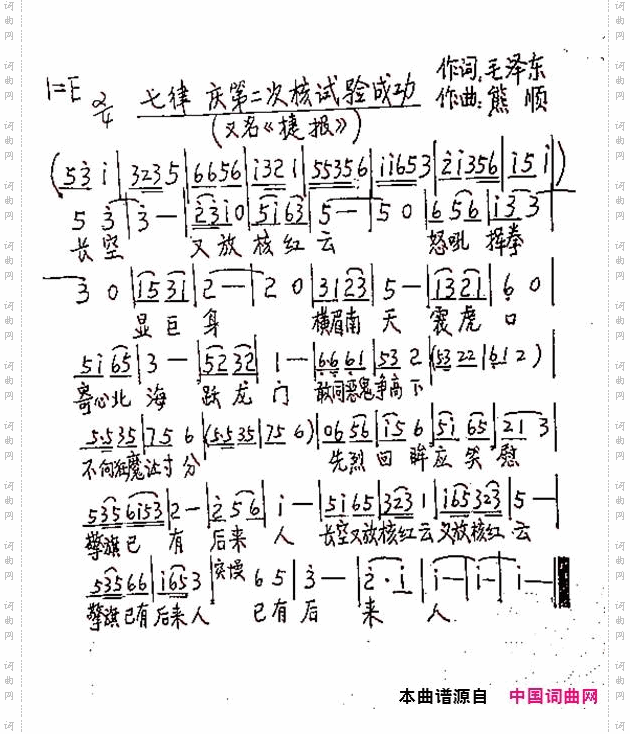 1=E 2/4 七律 庆第二次核试验成功 作词:毛泽东
(又名《捷报》) 作曲:熊 顺
(5 3 i | 3 2 3 5 | 6 6 5 6 | i 3 2 1 | 5 5 3 5 6 | i i 6 5 3 | 2 i 3 5 6 | i 5 i )
5 3 | 3 — | 2 3 i 0 | 5 i 6 3 | 5 — | 5 0 | 6 5 6 | i 3 3 |
长空 又放核红云 怒吼 挥拳
3 0 | i 5 3 i | 2 — | 2 0 | 3 1 2 3 | 5 — | i 3 2 i | 6 0 |
显巨身 横眉南天震虎口
5 i 6 5 | 3 — | 5 2 3 2 | 1 — | 6 6 6 1 | 5 3 2 | (5 3 2 2 | 6 1 2 ) |
寄心北海 跃龙门 敢同恶鬼争高下
5·5 3 5 | 7 5 6 | (5·5 3 5 | 7 5 6 ) | 0 6 5 6 | i 5 6 | 5 i 6 5 | 2 1 3 |
不向狂魔让寸分 先烈回眸应笑慰
5 3 5 6 i 5 3 | 2 — | 2 5 6 | i — | 5 i 6 5 | 3 2 3 1 | i 6 5 3 2 3 | 5 — |
擎旗已有后来人 长空又放核红云 又放核红云
5 3 5 6 6 | i 6 5 3 | 突慢 6 5 | 3 — | 2 · i | i — | i — | i — |
擎旗已有后来人 已有后来人
本曲谱源自 中国词曲网
词曲网